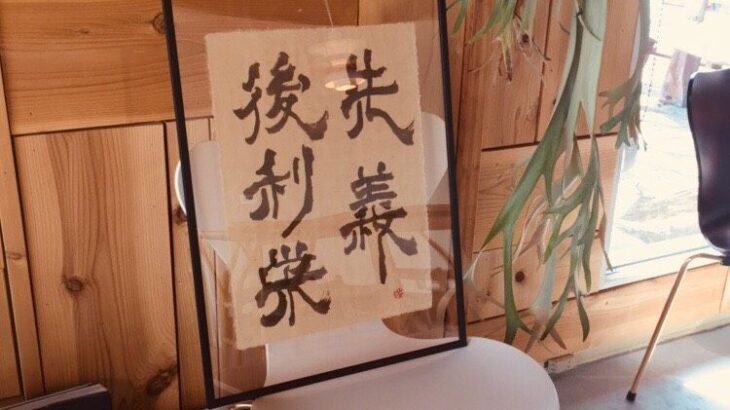 先義
後利栄